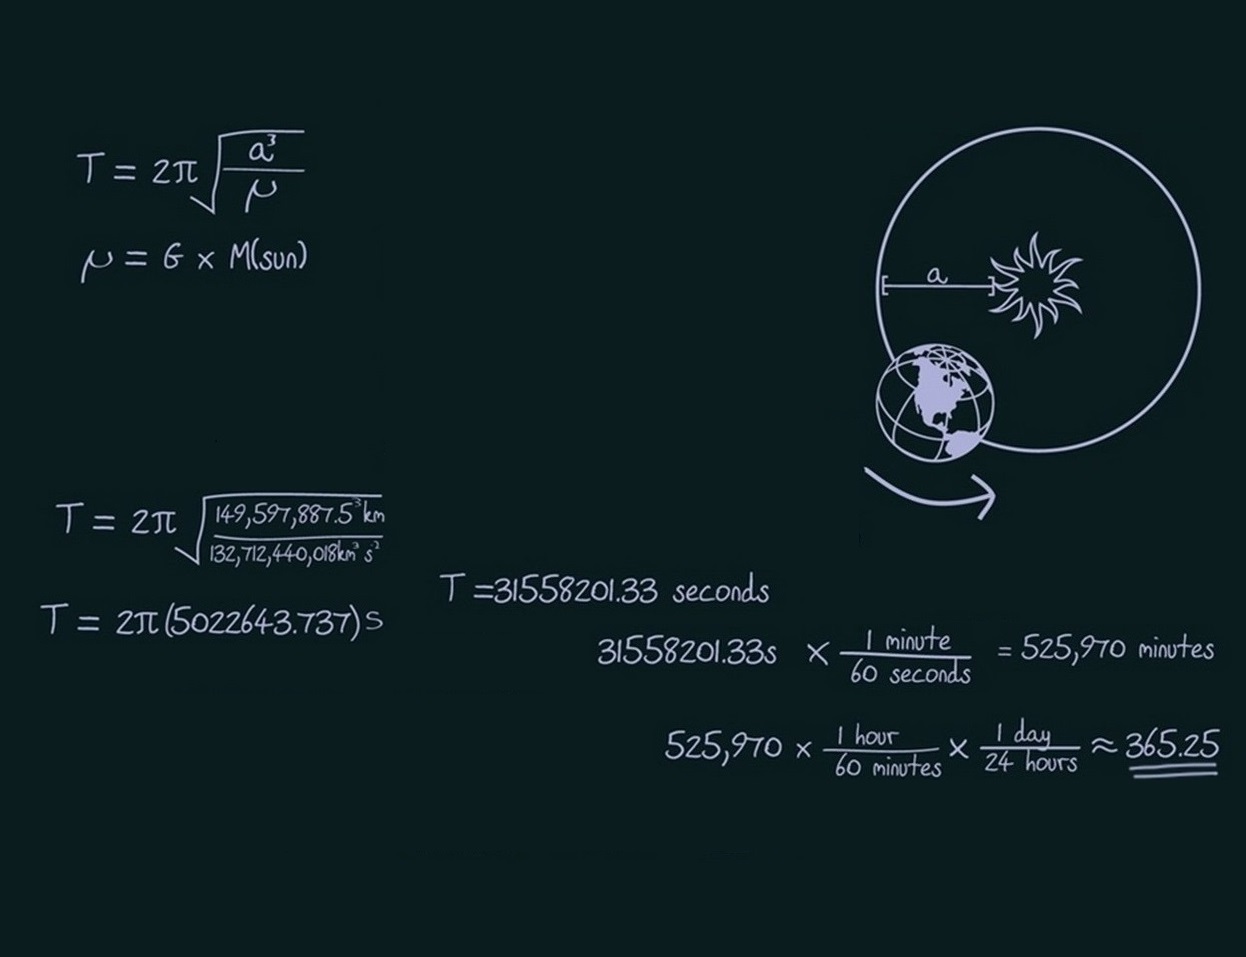 T = 2π√(a³/μ)
μ = G × M(sun)
a
T = 2π√(149,597,887.5³km/132,712,440,018km³ s²)
T = 2π(5022643.737)s
T =31558201.33 seconds
31558201.33s × 1 minute/60 seconds = 525,970 minutes
525,970 × 1 hour/60 minutes × 1 day/24 hours ≈ 365.25